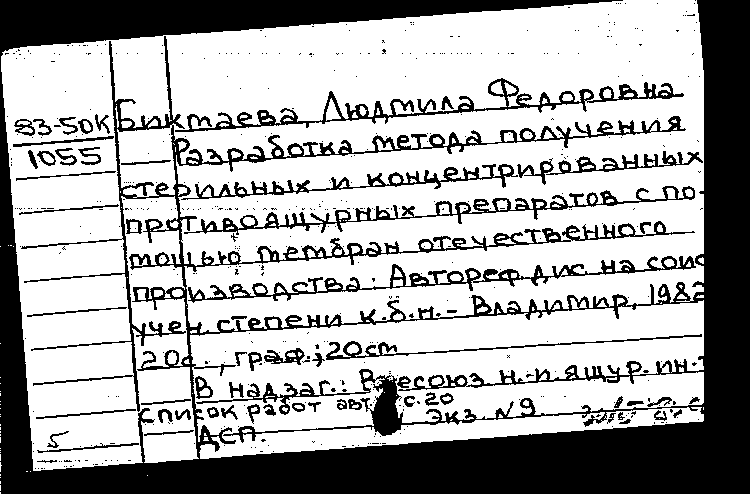 83-50К
1055
Биктаева, Людмила Федоровна
Разработка метода получения
стерильных и концентрированных
противоящурных препаратов с по-
мощью мембран отечественного
производства: Автореф. дис на соис
учен. степени к.б.н. – Владимир, 1982
20с., граф.; 20см
В надзаг.: Всесоюз. н.-и. ящур. ин-т
Список работ авт. с. 20
Экз. №9
ДСП.
5